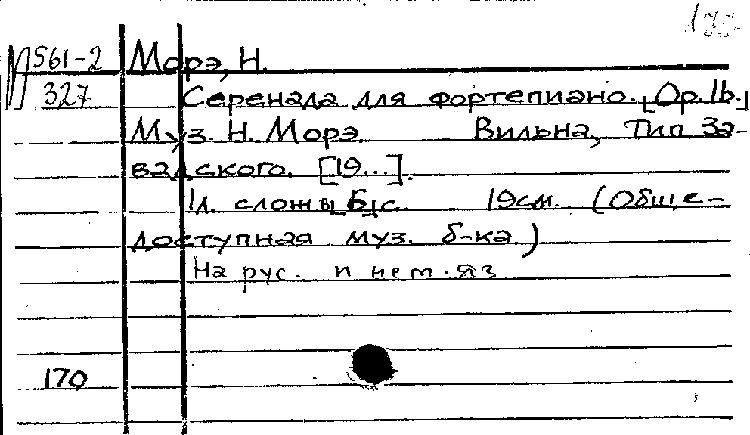 П561-2 Морэ, Н.
327 Серенада для фортепиано. [Ор. 1b.]
Муз. Н. Морэ. Вильна, Тип За-
вадского. [19...].
1л. слож. в 6 с. 19см. (Обще-
доступная муз. б-ка)
На рус. и нем. яз
170